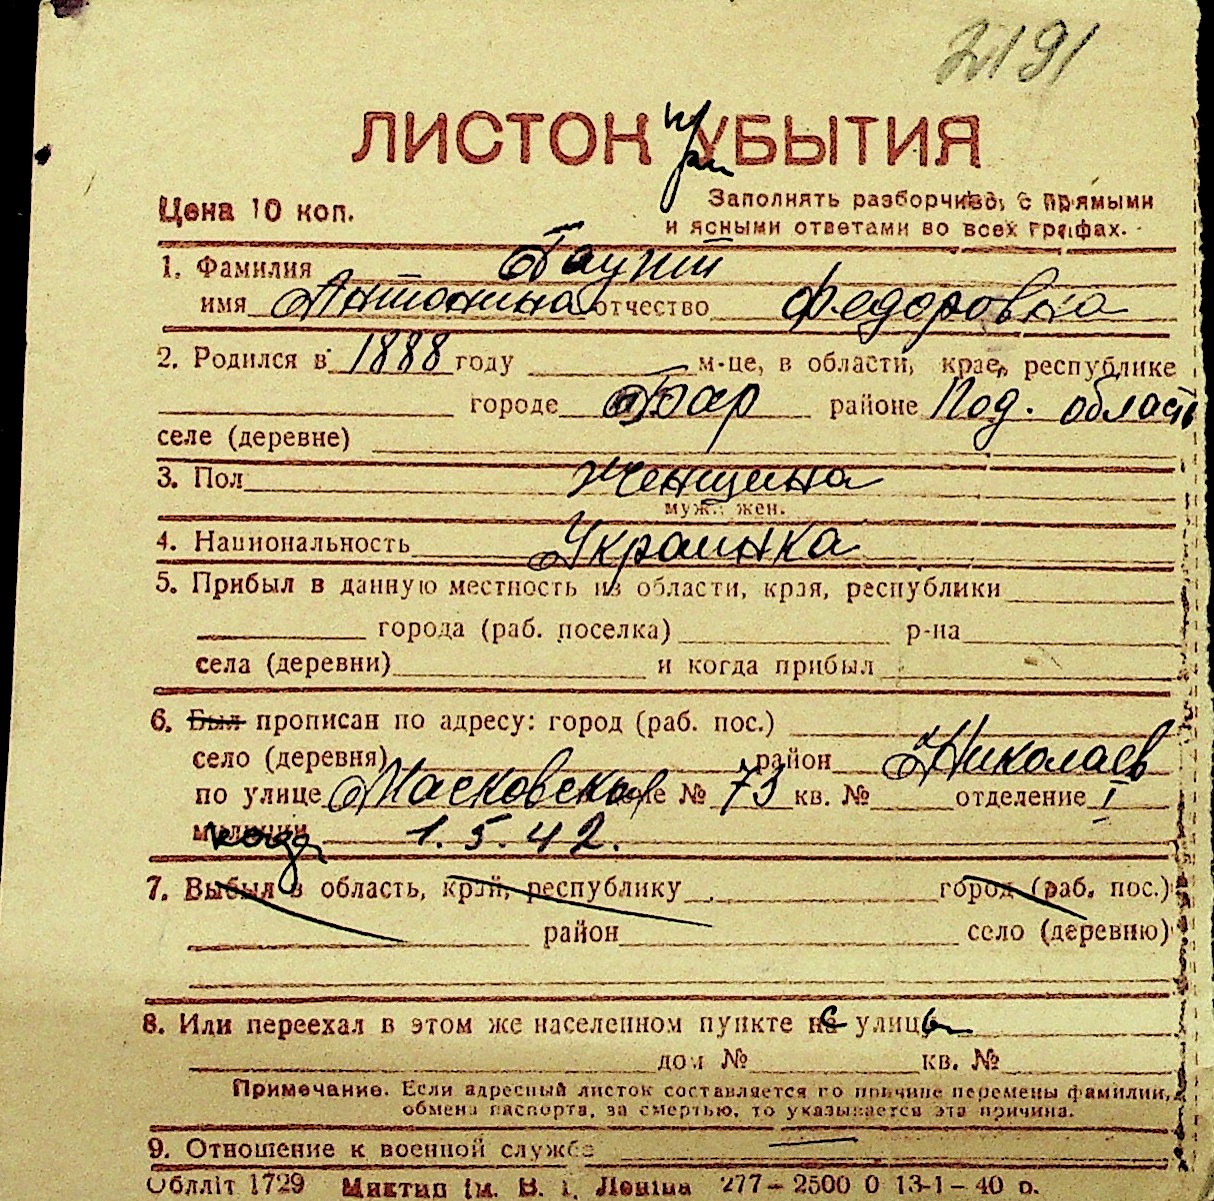 2191
ЛИСТОК при УБЫТИЯ
Цена 10 коп.
Заполнять разборчиво, с прямыми
и ясными ответами во всех графах.
1. Фамилия Баупт
имя Антонина отчество Федоровна
2. Родился в 1888 году м-це, в области, крае, республике
городе Бар районе Под. область
селе (деревне)
3. Пол Женщина
муж. жен.
4. Национальность Украинка
5. Прибыл в данную местность из области, края, республики
города (раб. поселка) р-на
села (деревни) и когда прибыл
6. Был прописан по адресу: город (раб. пос.)
село (деревня) район Николаев
по улице Масковская доме № 73 кв. № отделение I
милиции когда 1.5.42.
7. Выбыл в область, край, республику город (раб. пос.)
район село (деревню)
8. Или переехал в этом же населенном пункте с улицы
дом № кв. №
Примечание. Если адресный листок составляется по причине перемены фамилии,
обмена паспорта, за смертью, то указывается эта причина.
9. Отношение к военной службе
Обллiт 1729 Миктип iм. В. I. Ленiна 277–2500 0 13-1–40 р.